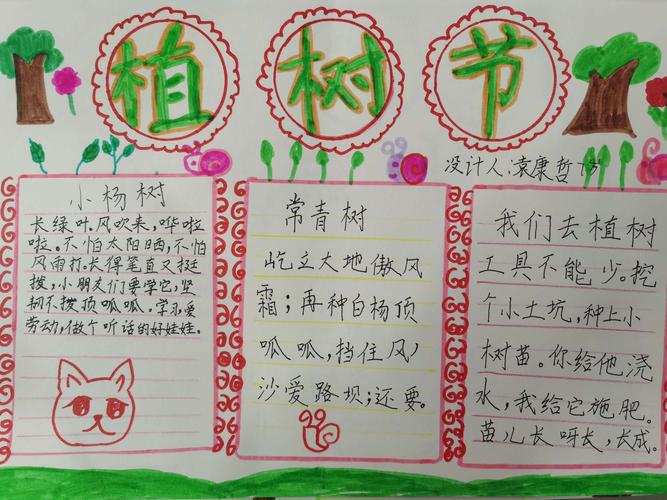 植树节
设计人:袁康哲 7岁
小杨树
长绿叶.风吹来,哗啦
啦。不怕太阳晒,不怕
风雨打.长得笔直又挺
拨,小朋友们要学它,坚
韧不拨顶呱呱。学习,爱
劳动,做个听话的好娃娃。
常青树
屹立大地傲风
霜;再种白杨顶
呱呱,挡住风
沙爱路坝;还要。
我们去植树
工具不能少。挖
个小土坑,种上小
树苗。你给他浇
水,我给它施肥。
苗儿长呀长,长成。